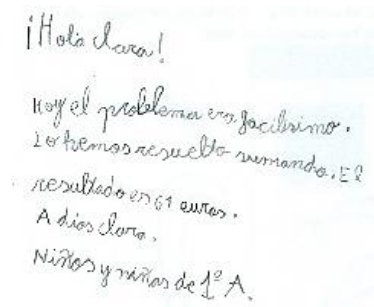 ¡Hola Clara!
Hoy el problema era facilisimo.
Lo hemos resuelto sumando. El
resultado es 61 euros.
A dios Clara.
Niños y niñas de 1º A.